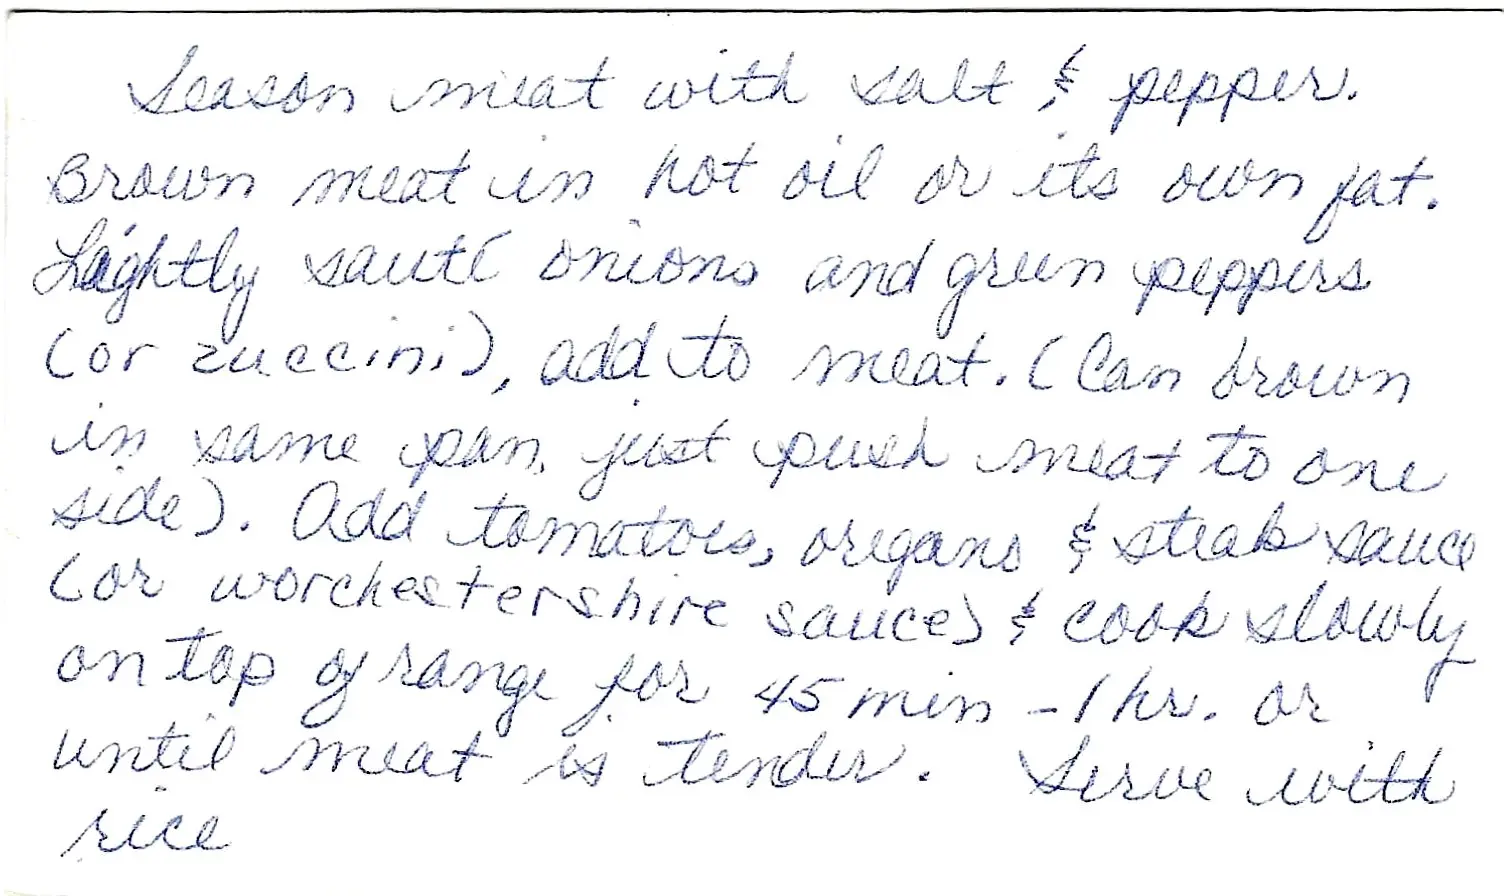 Season meat with salt & pepper.
Brown meat in hot oil or its own fat.
Lightly sauté onions and green peppers
(or zuccini), add to meat. (Can brown
in same pan, just push meat to one
side). Add tomatoes, oregano & steak sauce
(or worchestershire sauce) & cook slowly
on top of range for 45 min - 1 hr. or
until meat is tender. Serve with
rice